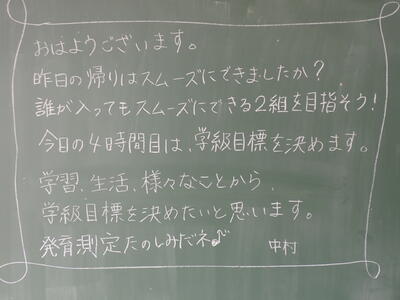 おはようございます。
昨日の帰りはスムーズにできましたか?
誰が入ってもスムーズにできる2組を目指そう!
今日の4時間目は、学級目標を決めます。
学習、生活、様々なことから、
学級目標を決めたいと思います。
発育測定たのしみだネ♪
中村